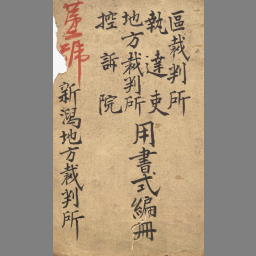 區裁判所
執達吏
地方裁判所
控訴院
用書式編冊
第二號
新潟地方裁判所